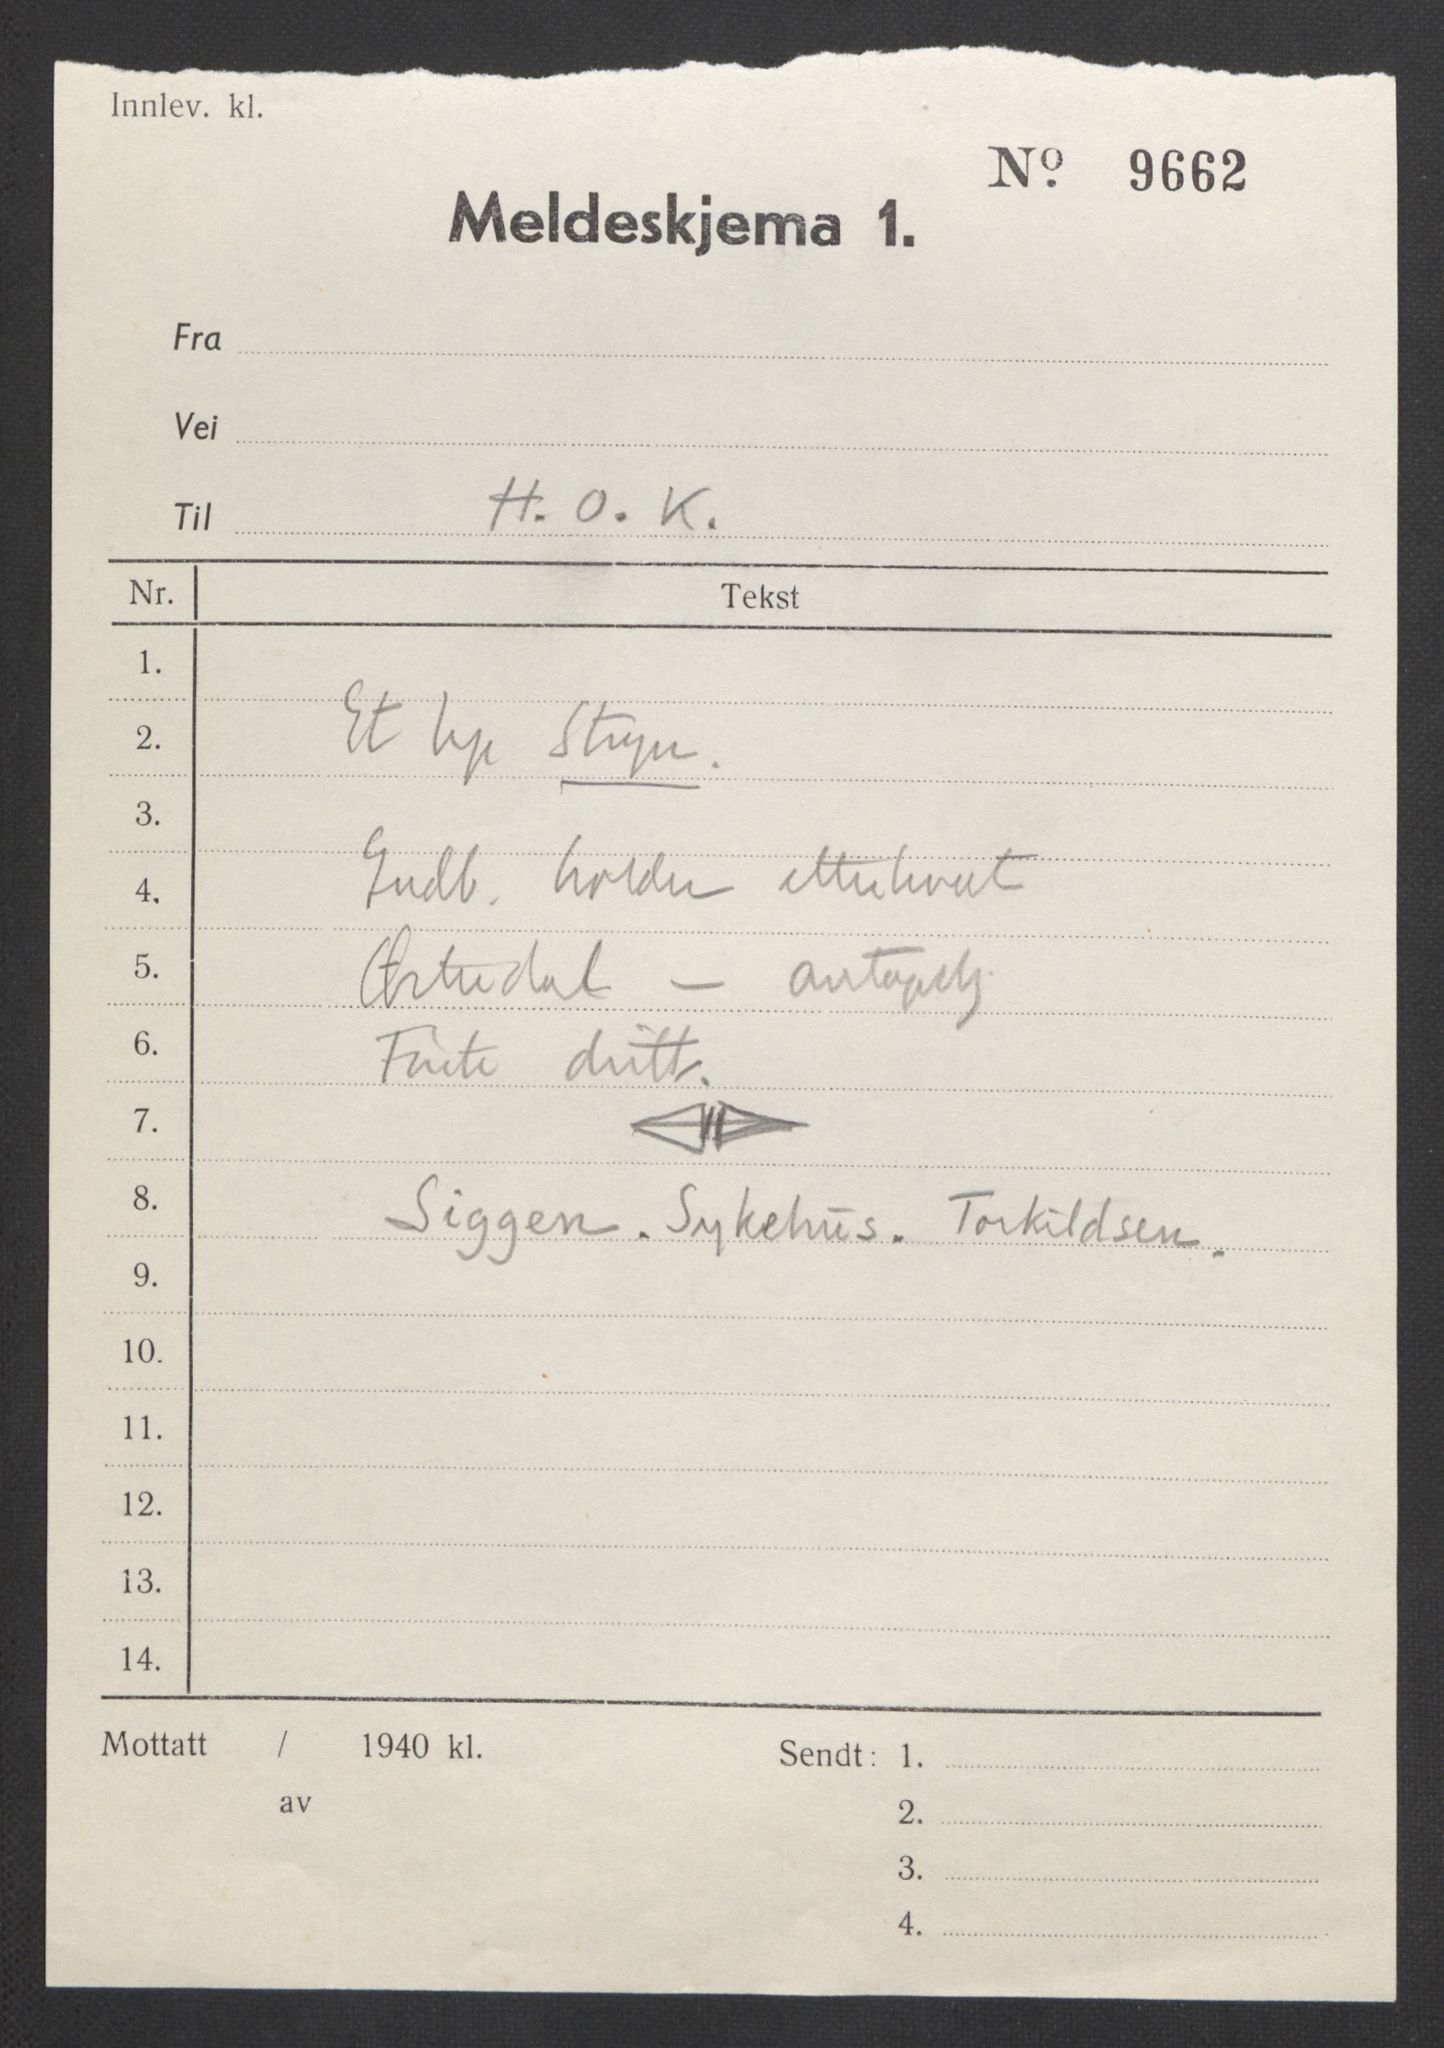 Innlev. kl.
Nº 9662
Meldeskjema 1.
Fra
Vei
Til H. O. K.
Nr. Tekst
1.
2. Et Stryn.
3.
4. Gudb. holder etterhvert
5. Østerdal —
6. dritt.
7.
8. Siggen. Sykehus. Torkildsen.
9.
10.
11.
12.
13.
14.
Mottatt / 1940 kl.
av
Sendt: 1.
2.
3.
4.